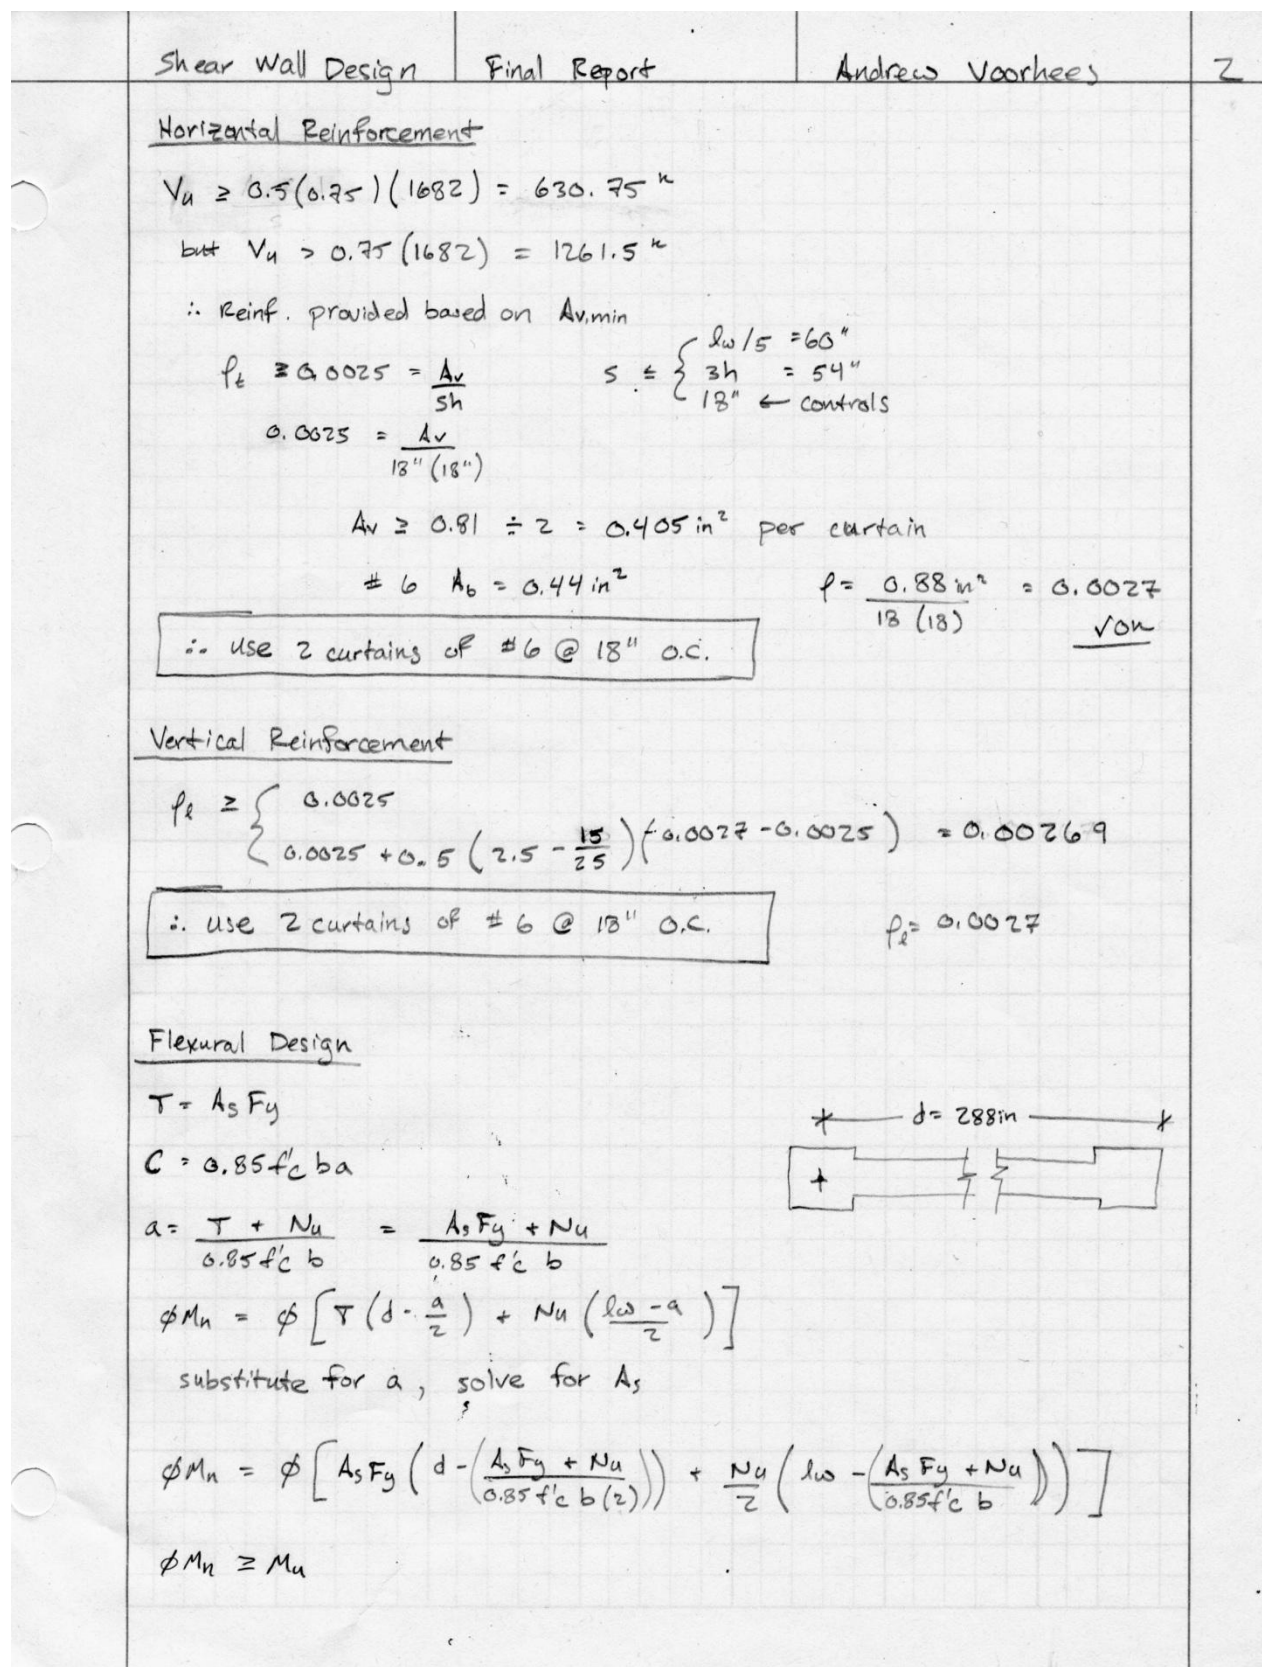 Shear Wall Design Final Report Andrew Voorhees 2
Horizontal Reinforcement
Vu ≥ 0.5(0.75)(1682) = 630.75 k
but Vu > 0.75(1682) = 1261.5 k
∴ Reinf. provided based on Av,min
ρt ≥ 0.0025 = Av/sh
s ≤ { lw/5 = 60"
3h = 54"
18" ← controls
0.0025 = Av/18"(18")
Av ≥ 0.81 ÷ 2 = 0.405 in² per curtain
#6 Ab = 0.44 in²
ρ = 0.88 in²/18(18) = 0.0027
√ OK
∴ Use 2 curtains of #6 @ 18" O.C.
Vertical Reinforcement
ρl ≥ { 0.0025
0.0025 + 0.5 (2.5 - 15/25)(0.0027 - 0.0025) = 0.00269
∴ Use 2 curtains of #6 @ 18" O.C.
ρl = 0.0027
Flexural Design
T = As Fy
d = 288in
C = 0.85 f'c ba
a = T + Nu / 0.85 f'c b = As Fy + Nu / 0.85 f'c b
φMn = φ [T (d - a/2) + Nu (lw - a / 2)]
substitute for a, solve for As
φMn = φ [As Fy (d - (As Fy + Nu / 0.85 f'c b (2))) + Nu/2 (lw - (As Fy + Nu / 0.85 f'c b))]
φMn ≥ Mu